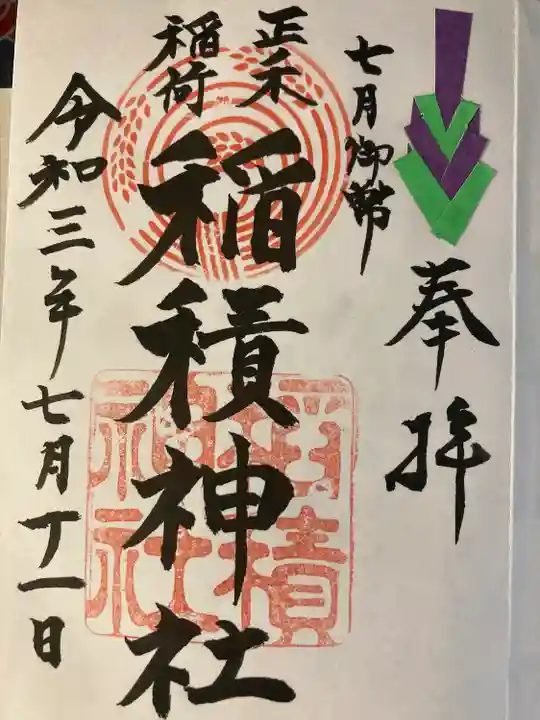 奉拝
七月御幣
正禾
稲荷
稲積神社
稲積
神社
令和三年七月十一日